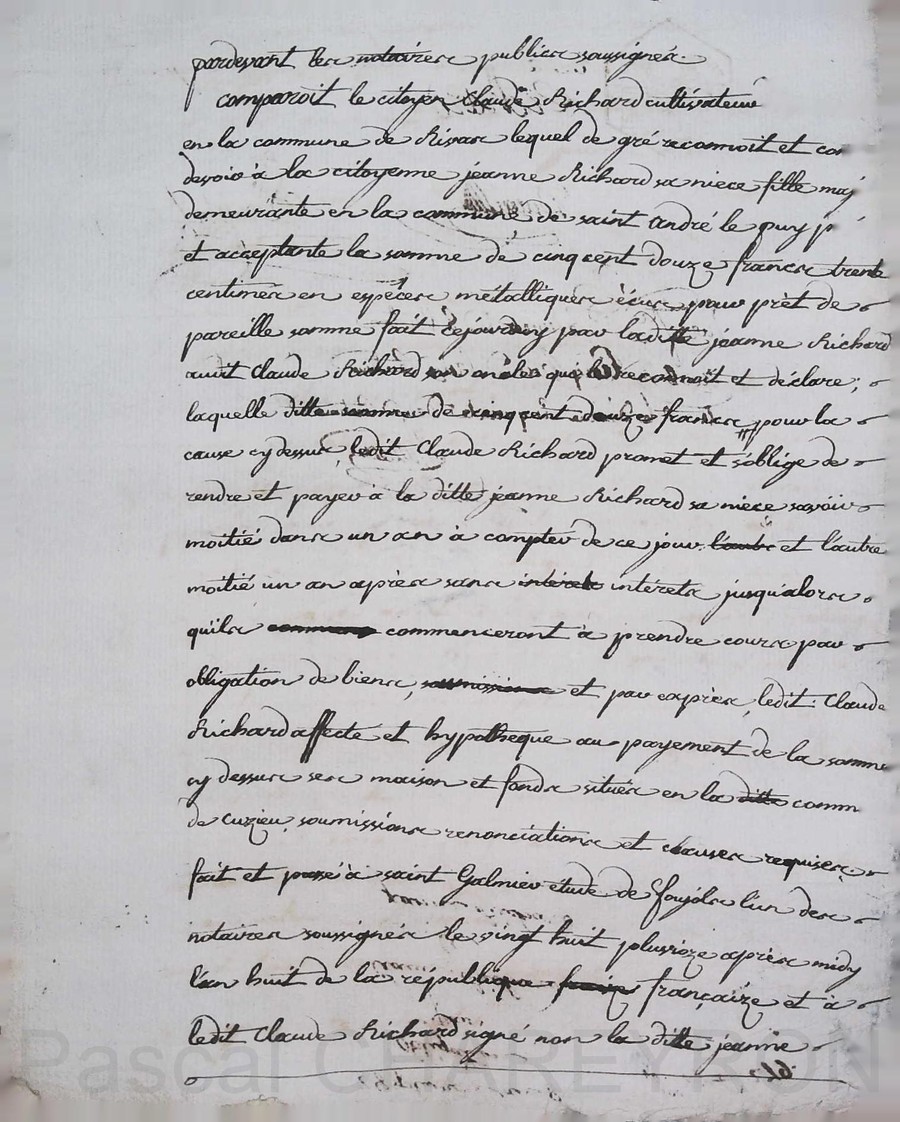 pardevant les notaires publics soussignés
comparoit le citoyen Claude Richard cultivateur
en la commune de Rivas lequel de gré reconnoit et con
devoir à la citoyenne jeanne Richard sa niece fille maj
demeurante en la commune de saint andré le puy p
et acceptante la somme de cinq cent douze francs trente
centimes en espéces métalliques écus pour prêt de
pareille somme fait cejourduy par laditte jeanne Richard
audit Claude Richard son oncle qui le reconnoit et déclare ;
laquelle ditte somme de cinq cent douze francs pour la
cause cy dessus ledit Claude Richard promet et s'oblige de
rendre et payer à la ditte jeanne Richard sa niece savoir
moitié dans un an à compter de ce jour l'autre et l'autre
moitié un an après sans intérets intérets jusqu'alors
quils commenceront à prendre cours par
obligation de biens, soumissions et par exprès, ledit : Claude
Richard affecte et hypotheque au payement de la somme
cy dessus ses maison et fonds situés en la ditte comm
de cuzieu, soumissions renonciations et clauses requises
fait et passé à saint Galmier etude de foujols l'un des
notaires soussignés le vingt huit pluviôze après midy
l'an huit de la république françaize et à
ledit Claude Richard signé non la ditte jeanne
Pascal CHAREYRON